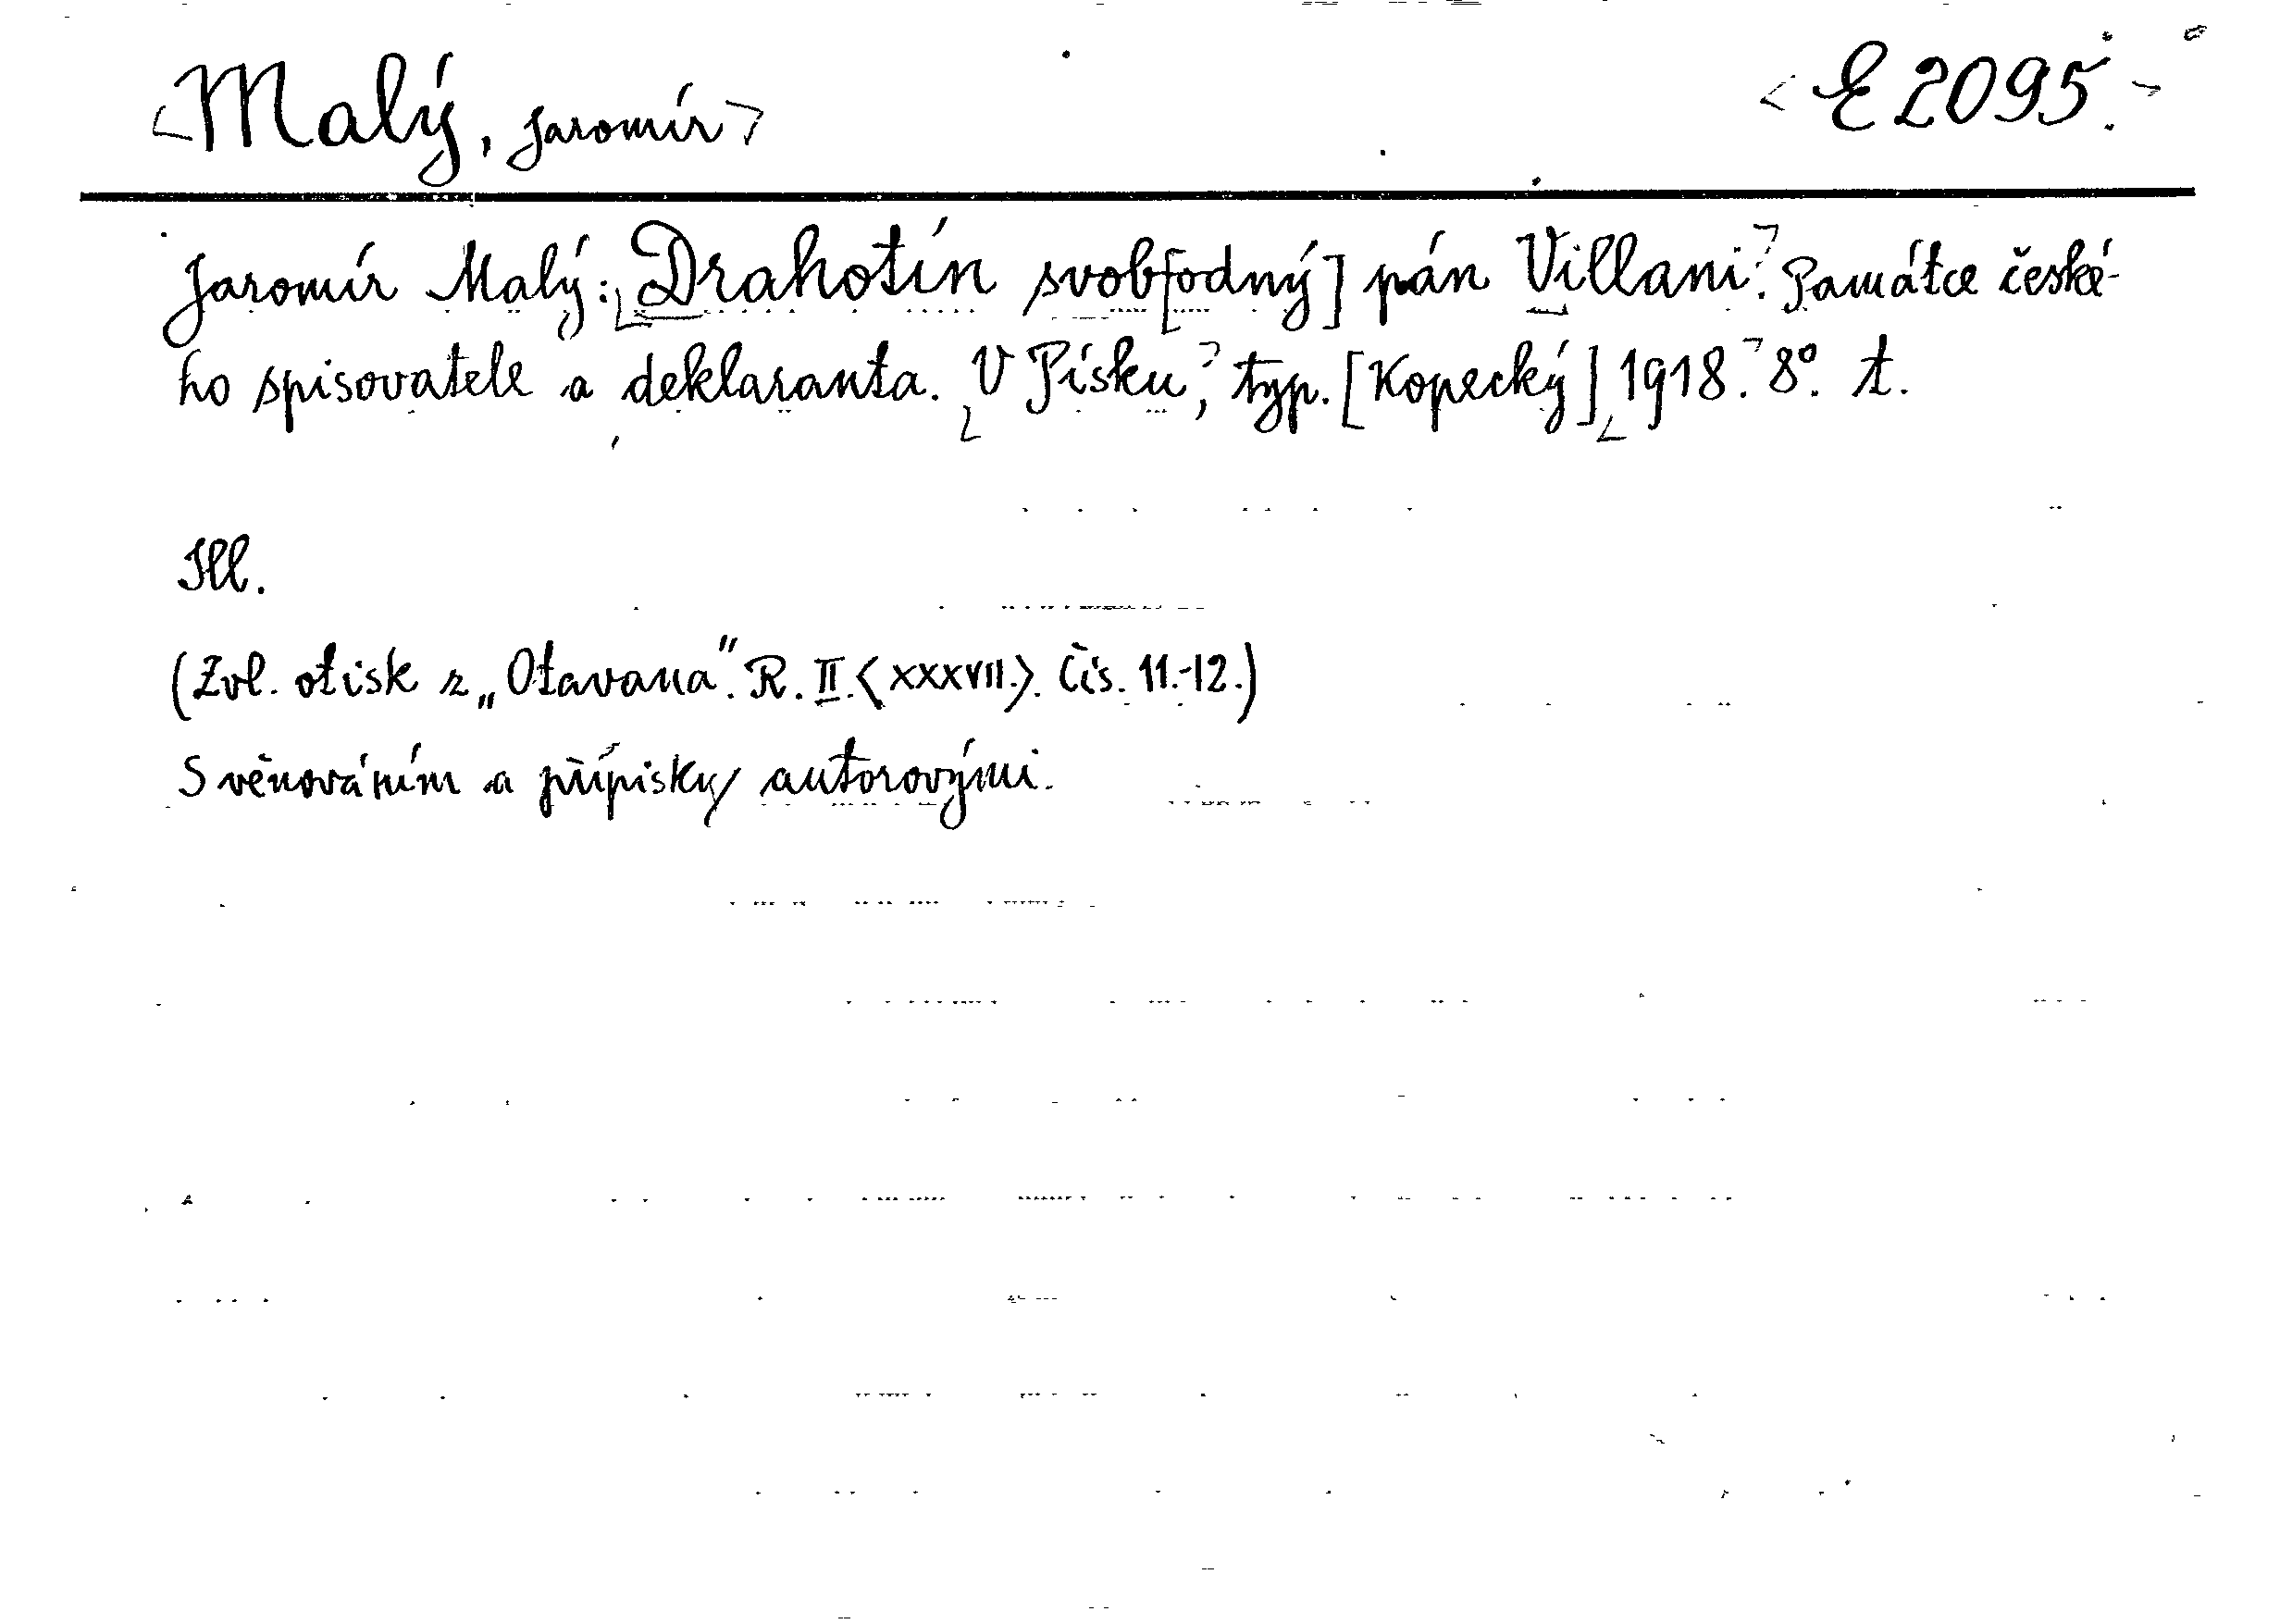 Malý, Jaromír
E 2095.
Jaromír Malý: Drahotín svob[odný] pán Villani. Památce české-
ho spisovatele a deklaranta. V Písku, typ. [Kopecký] 1918. 8°. t.
Ill.
(Zvl. otisk z „Otavana“. R. II. <XXXVII.>. Čís. 11.-12.)
S věnováním a přípisky autorovými.